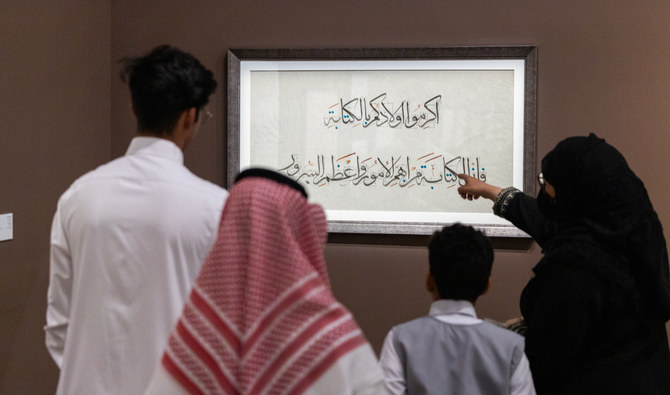 اكرموا اولادكم بالكتابة
فان الكتابة من اهم الامور واعظم السرور